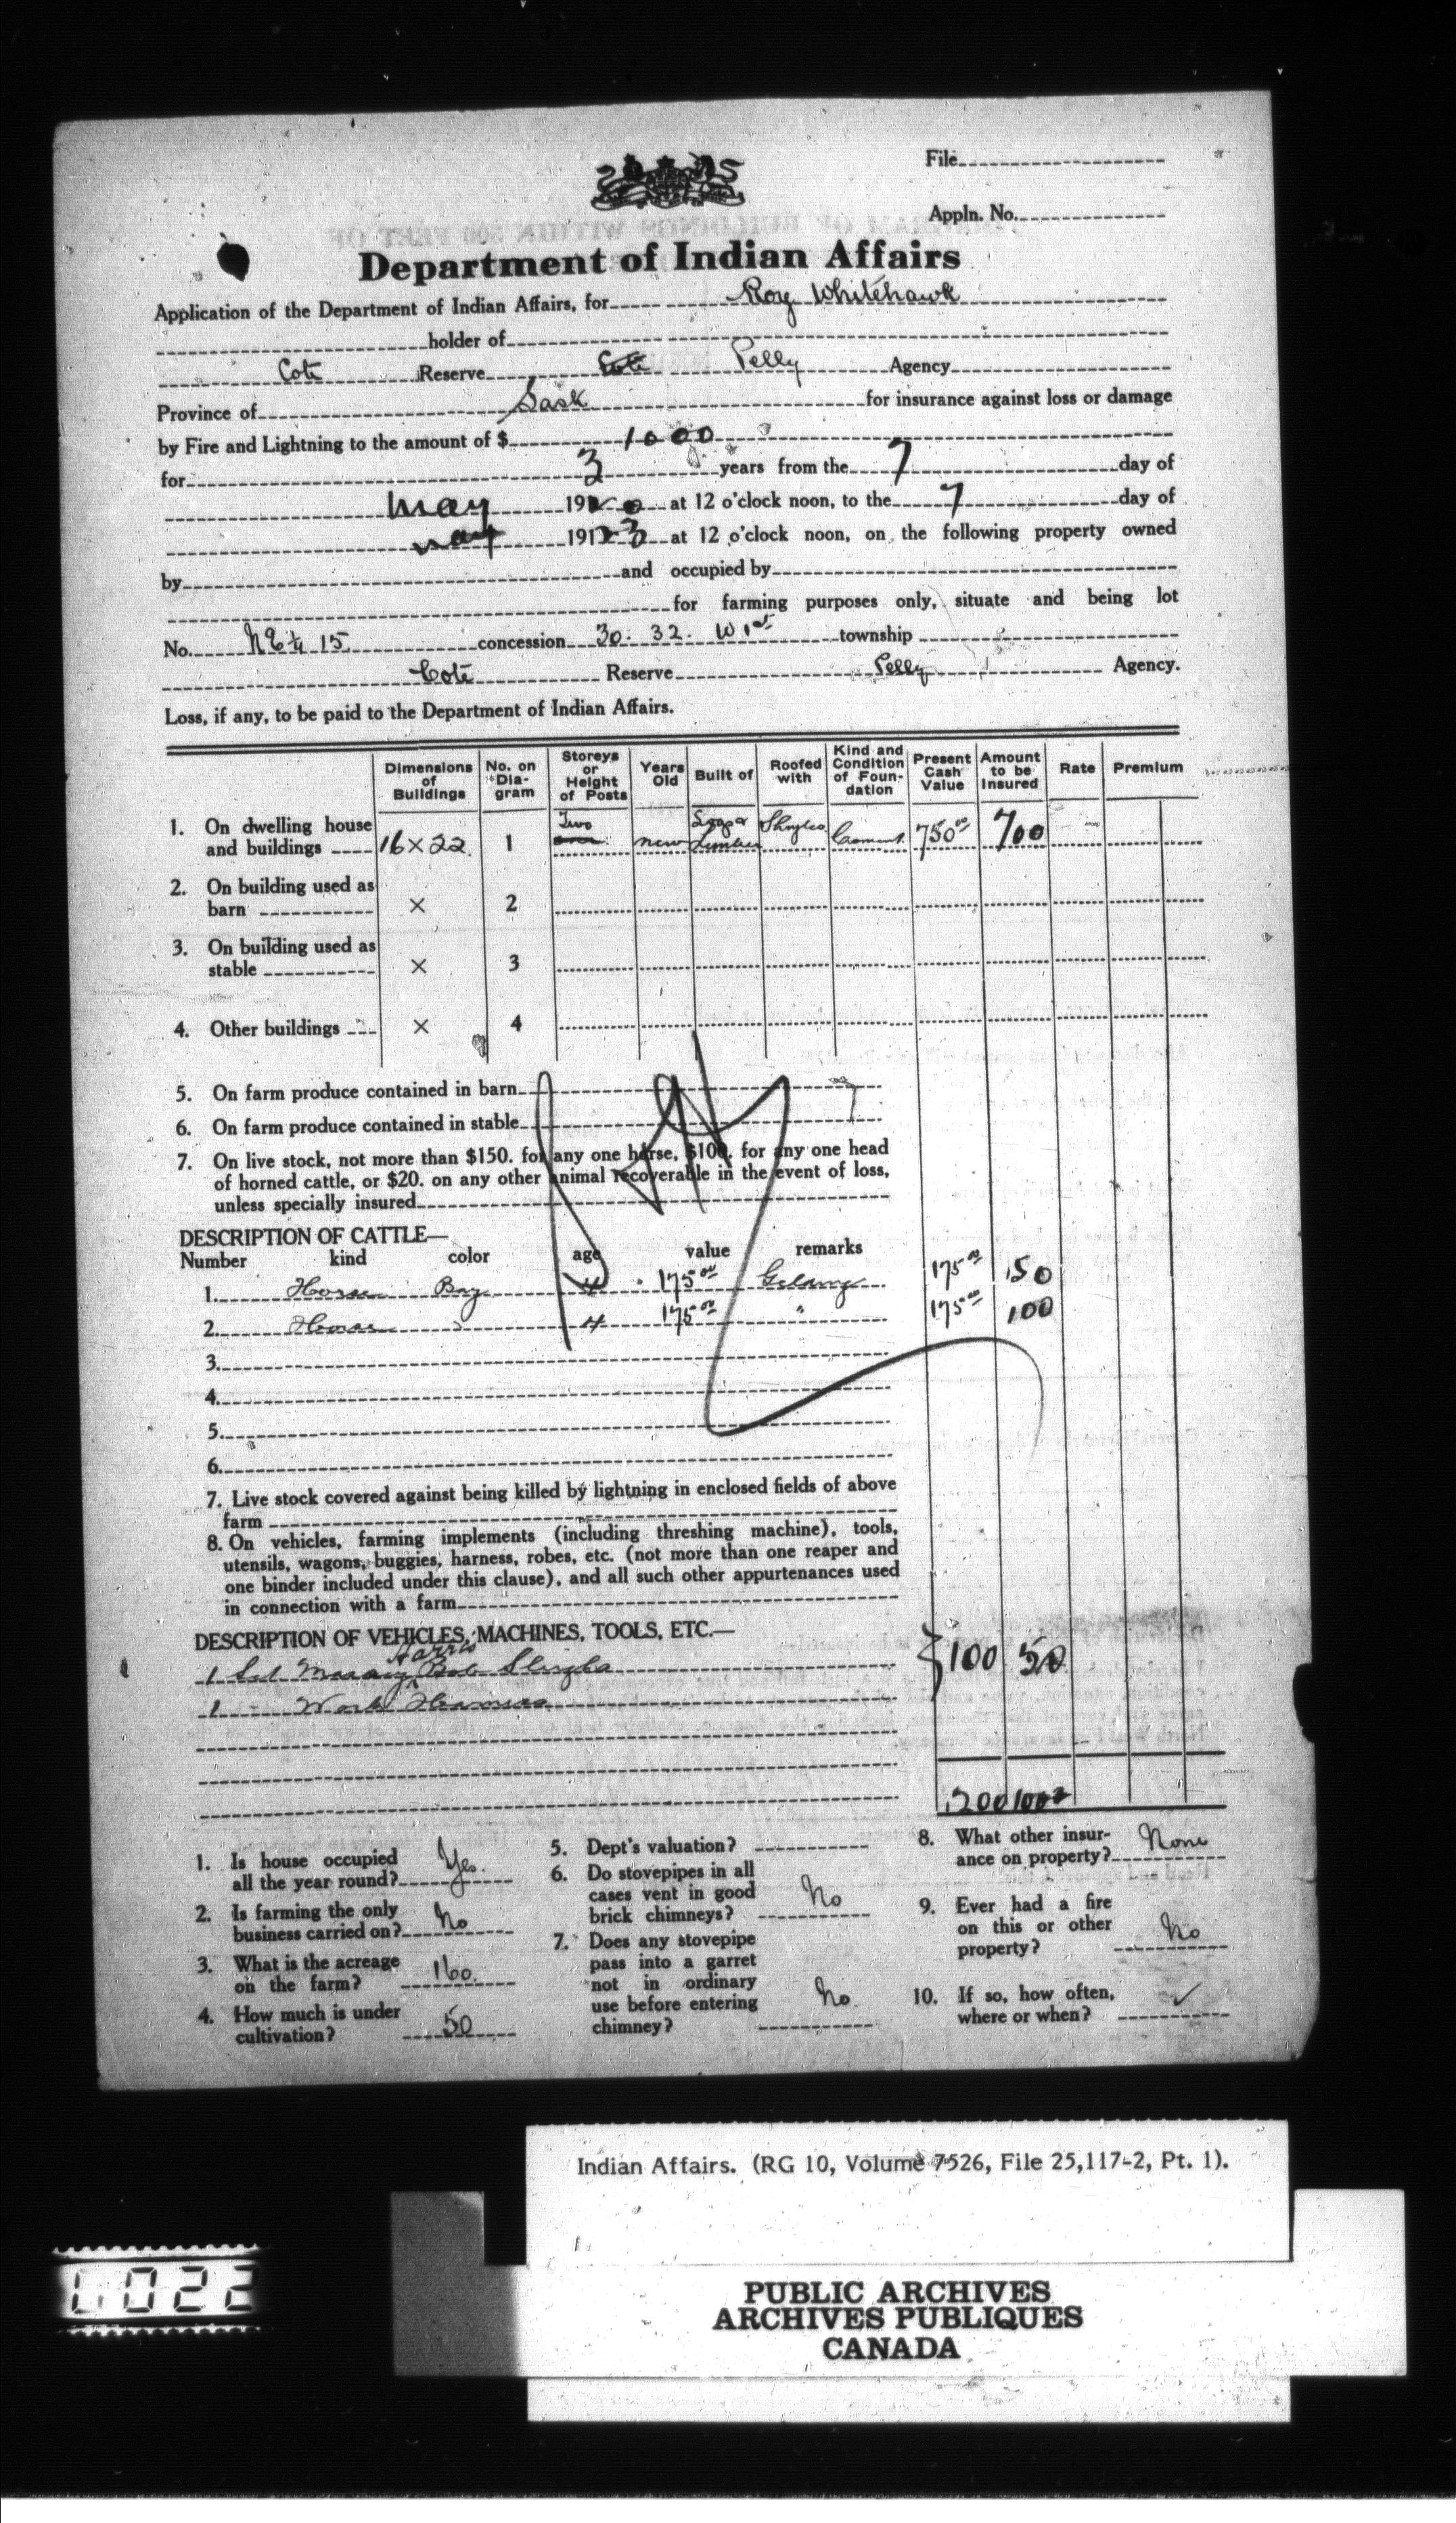 File
Appln. No.
Department of Indian Affairs
Application of the Department of Indian Affairs, for Roy Whitehawk
holder of
Cote Reserve Cote Pelly Agency
Province of Sask for insurance against loss or damage
by Fire and Lightning to the amount of $ 1000
for 3 years from the 7 day of
May 1920 at 12 o'clock noon, to the 7 day of
May 1923 at 12 o'clock noon, on the following property owned
by and occupied by
for farming purposes only, situate and being lot
No. NE ¼ 15 concession 30. 32. W 1st township
Cote Reserve Pelly Agency.
Loss, if any, to be paid to the Department of Indian Affairs.
Dimensions of Buildings No. on Diagram Storeys or Height of Posts Years Old Built of Roofed with Kind and Condition of Foundation Present Cash Value Amount to be Insured Rate Premium
1. On dwelling house and buildings 16 × 22 1 Two new Logs & Lumber Shingles Cement 750.00 700
2. On building used as barn × 2
3. On building used as stable × 3
4. Other buildings × 4
5. On farm produce contained in barn
6. On farm produce contained in stable
7. On live stock, not more than $150. for any one horse, $100. for any one head
of horned cattle, or $20. on any other animal recoverable in the event of loss,
unless specially insured
DESCRIPTION OF CATTLE—
Number kind color age value remarks
1. Horse Bay 4 175.00 Gelding 175.00 150
2. Horse " 4 175.00 " 175.00 100
3.
4.
5.
6.
7. Live stock covered against being killed by lightning in enclosed fields of above
farm
8. On vehicles, farming implements (including threshing machine), tools,
utensils, wagons, buggies, harness, robes, etc. (not more than one reaper and
one binder included under this clause), and all such other appurtenances used
in connection with a farm
DESCRIPTION OF VEHICLES, MACHINES, TOOLS, ETC.—
1 Set Massey Harris Bob Sleighs 100 50
1 Work Harness
1200 1000
1. Is house occupied
all the year round? Yes.
2. Is farming the only
business carried on? No
3. What is the acreage
on the farm? 160.
4. How much is under
cultivation? 50
5. Dept's valuation?
6. Do stovepipes in all
cases vent in good
brick chimneys? No
7. Does any stovepipe
pass into a garret
not in ordinary
use before entering
chimney? No.
8. What other insur-
ance on property? None
9. Ever had a fire
on this or other
property? No
10. If so, how often,
where or when? ✓
Indian Affairs. (RG 10, Volume 7526, File 25,117-2, Pt. 1).
PUBLIC ARCHIVES
ARCHIVES PUBLIQUES
CANADA